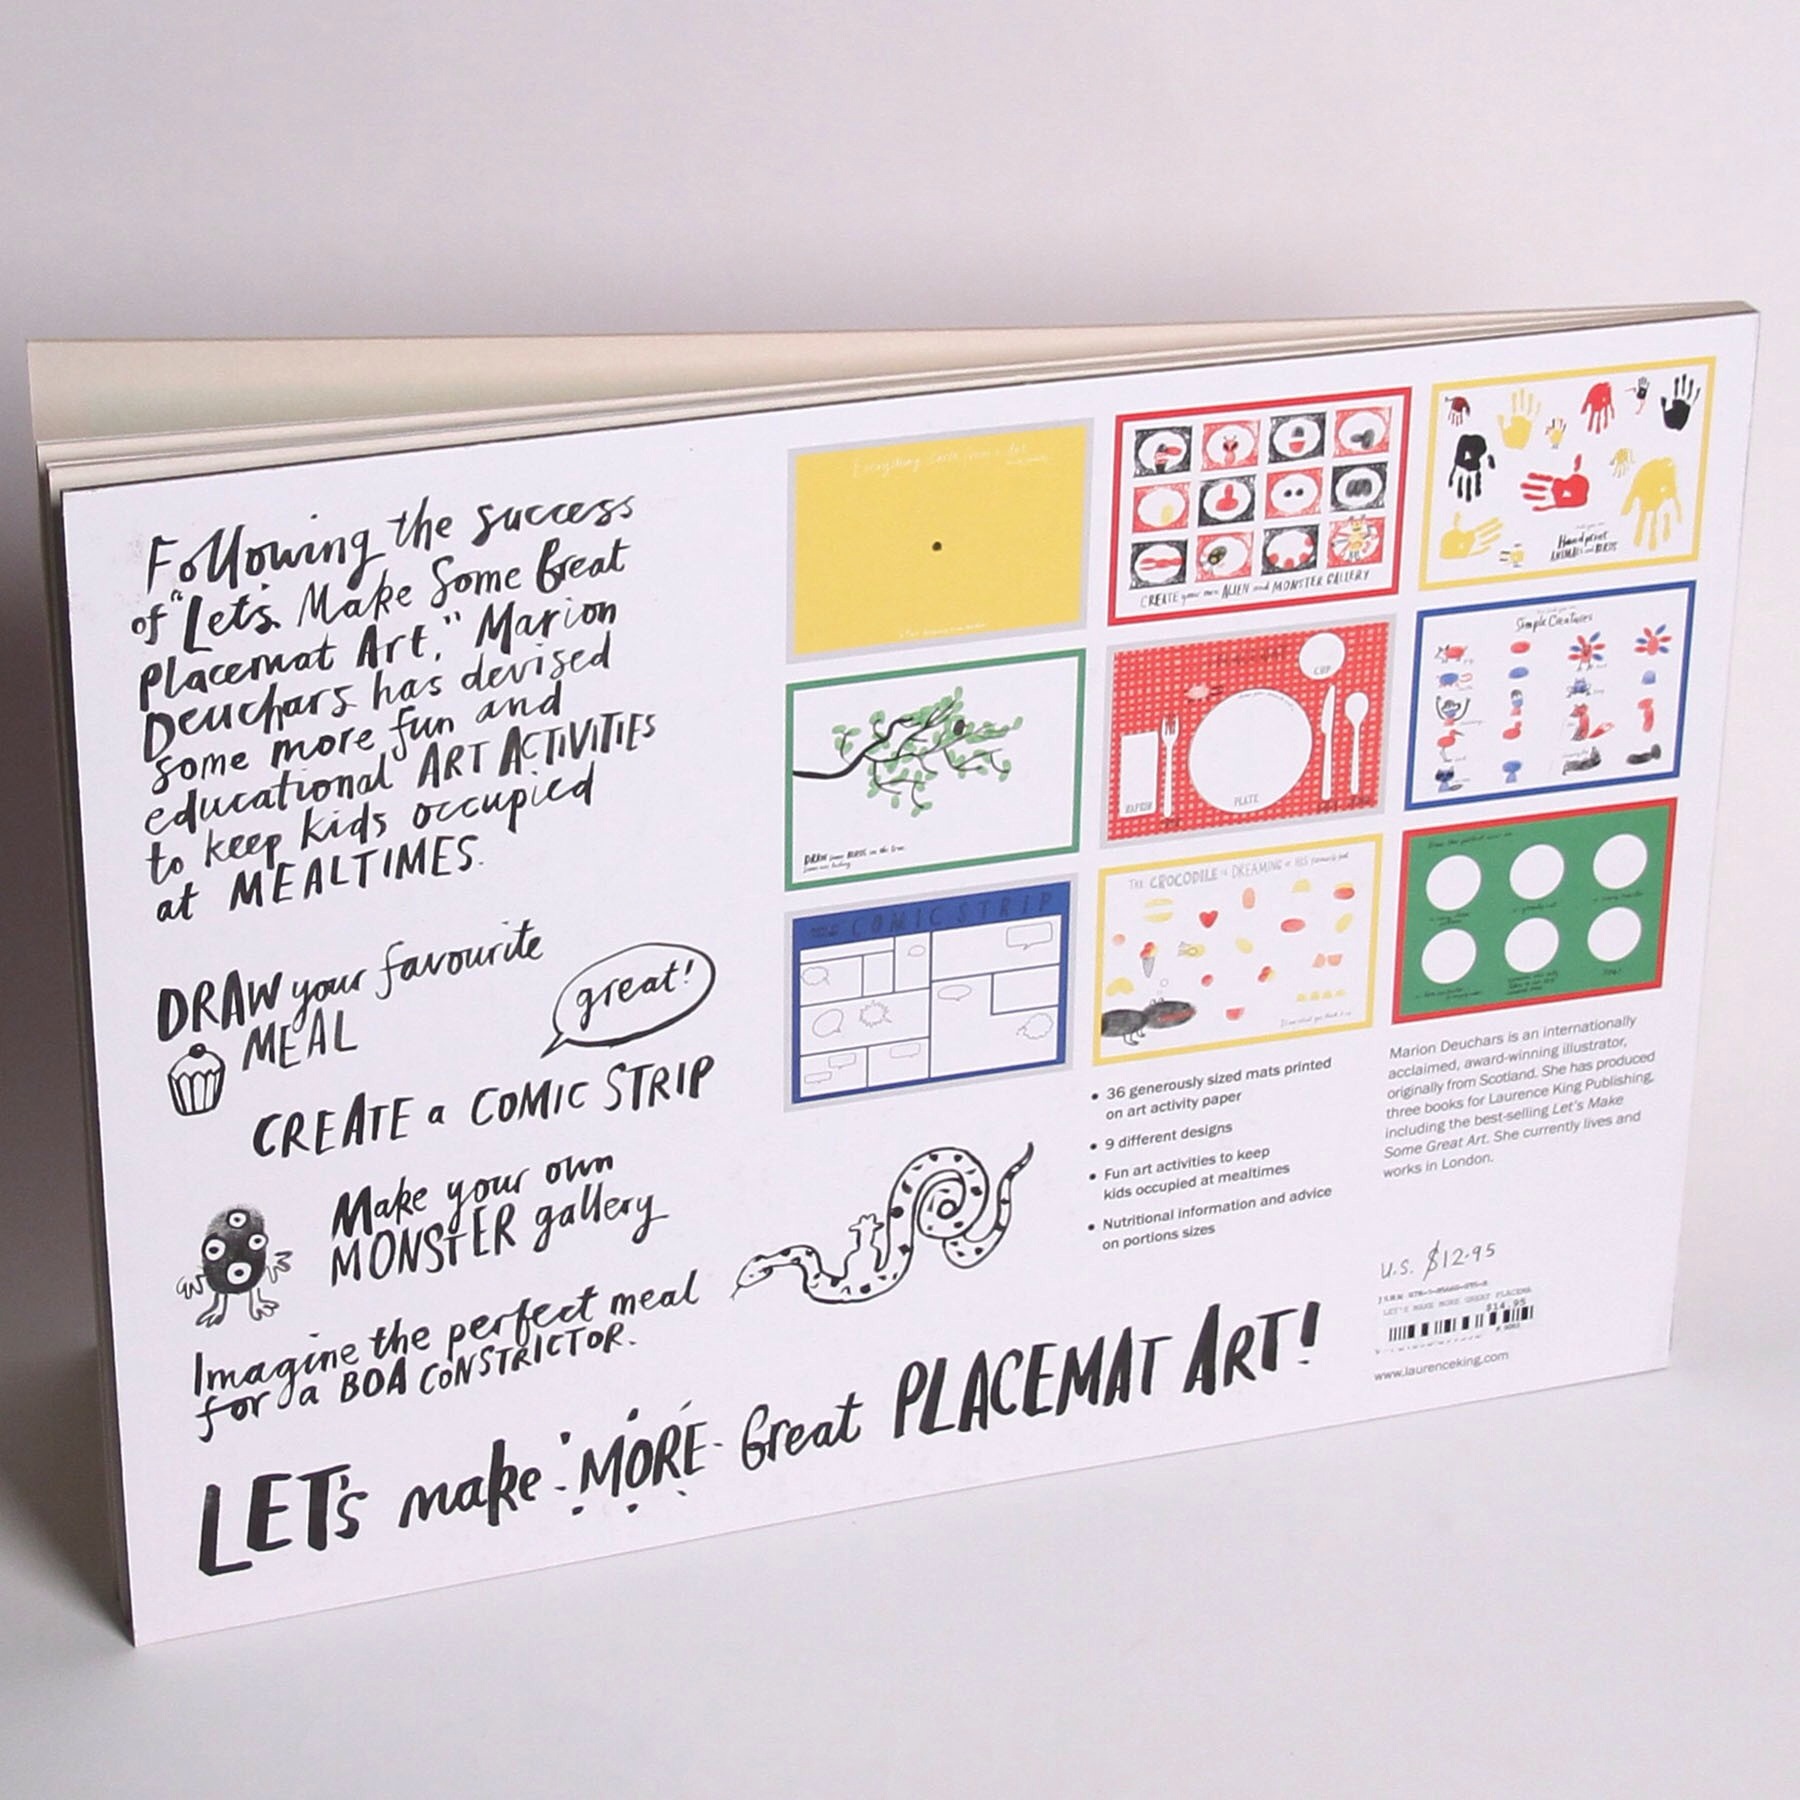 Following the success
of "Let's Make Some Great
Placemat Art," Marion
Deuchars has devised
some more fun and
educational ART ACTIVITIES
to keep kids occupied
at MEALTIMES.
DRAW your favourite
MEAL
great!
CREATE a COMIC STRIP
Make your own
MONSTER gallery
Imagine the perfect meal
for a BOA CONSTRICTOR.
LET's make MORE Great PLACEMAT ART!
Everything starts from a dot
CREATE your own ALIEN and MONSTER GALLERY
Handprint
ANIMALS and BIRDS
DRAW some BIRDS in the tree.
CUP
NAPKIN
PLATE
Simple Creatures
COMIC STRIP
THE CROCODILE is DREAMING of HIS favourite food
Draw what you think it is
• 36 generously sized mats printed
on art activity paper
• 9 different designs
• Fun art activities to keep
kids occupied at mealtimes
• Nutritional information and advice
on portions sizes
Marion Deuchars is an internationally
acclaimed, award-winning illustrator,
originally from Scotland. She has produced
three books for Laurence King Publishing,
including the best-selling Let's Make
Some Great Art. She currently lives and
works in London.
U.S. $12.95
LET'S MAKE MORE GREAT PLACEMA
$14.95
www.laurenceking.com